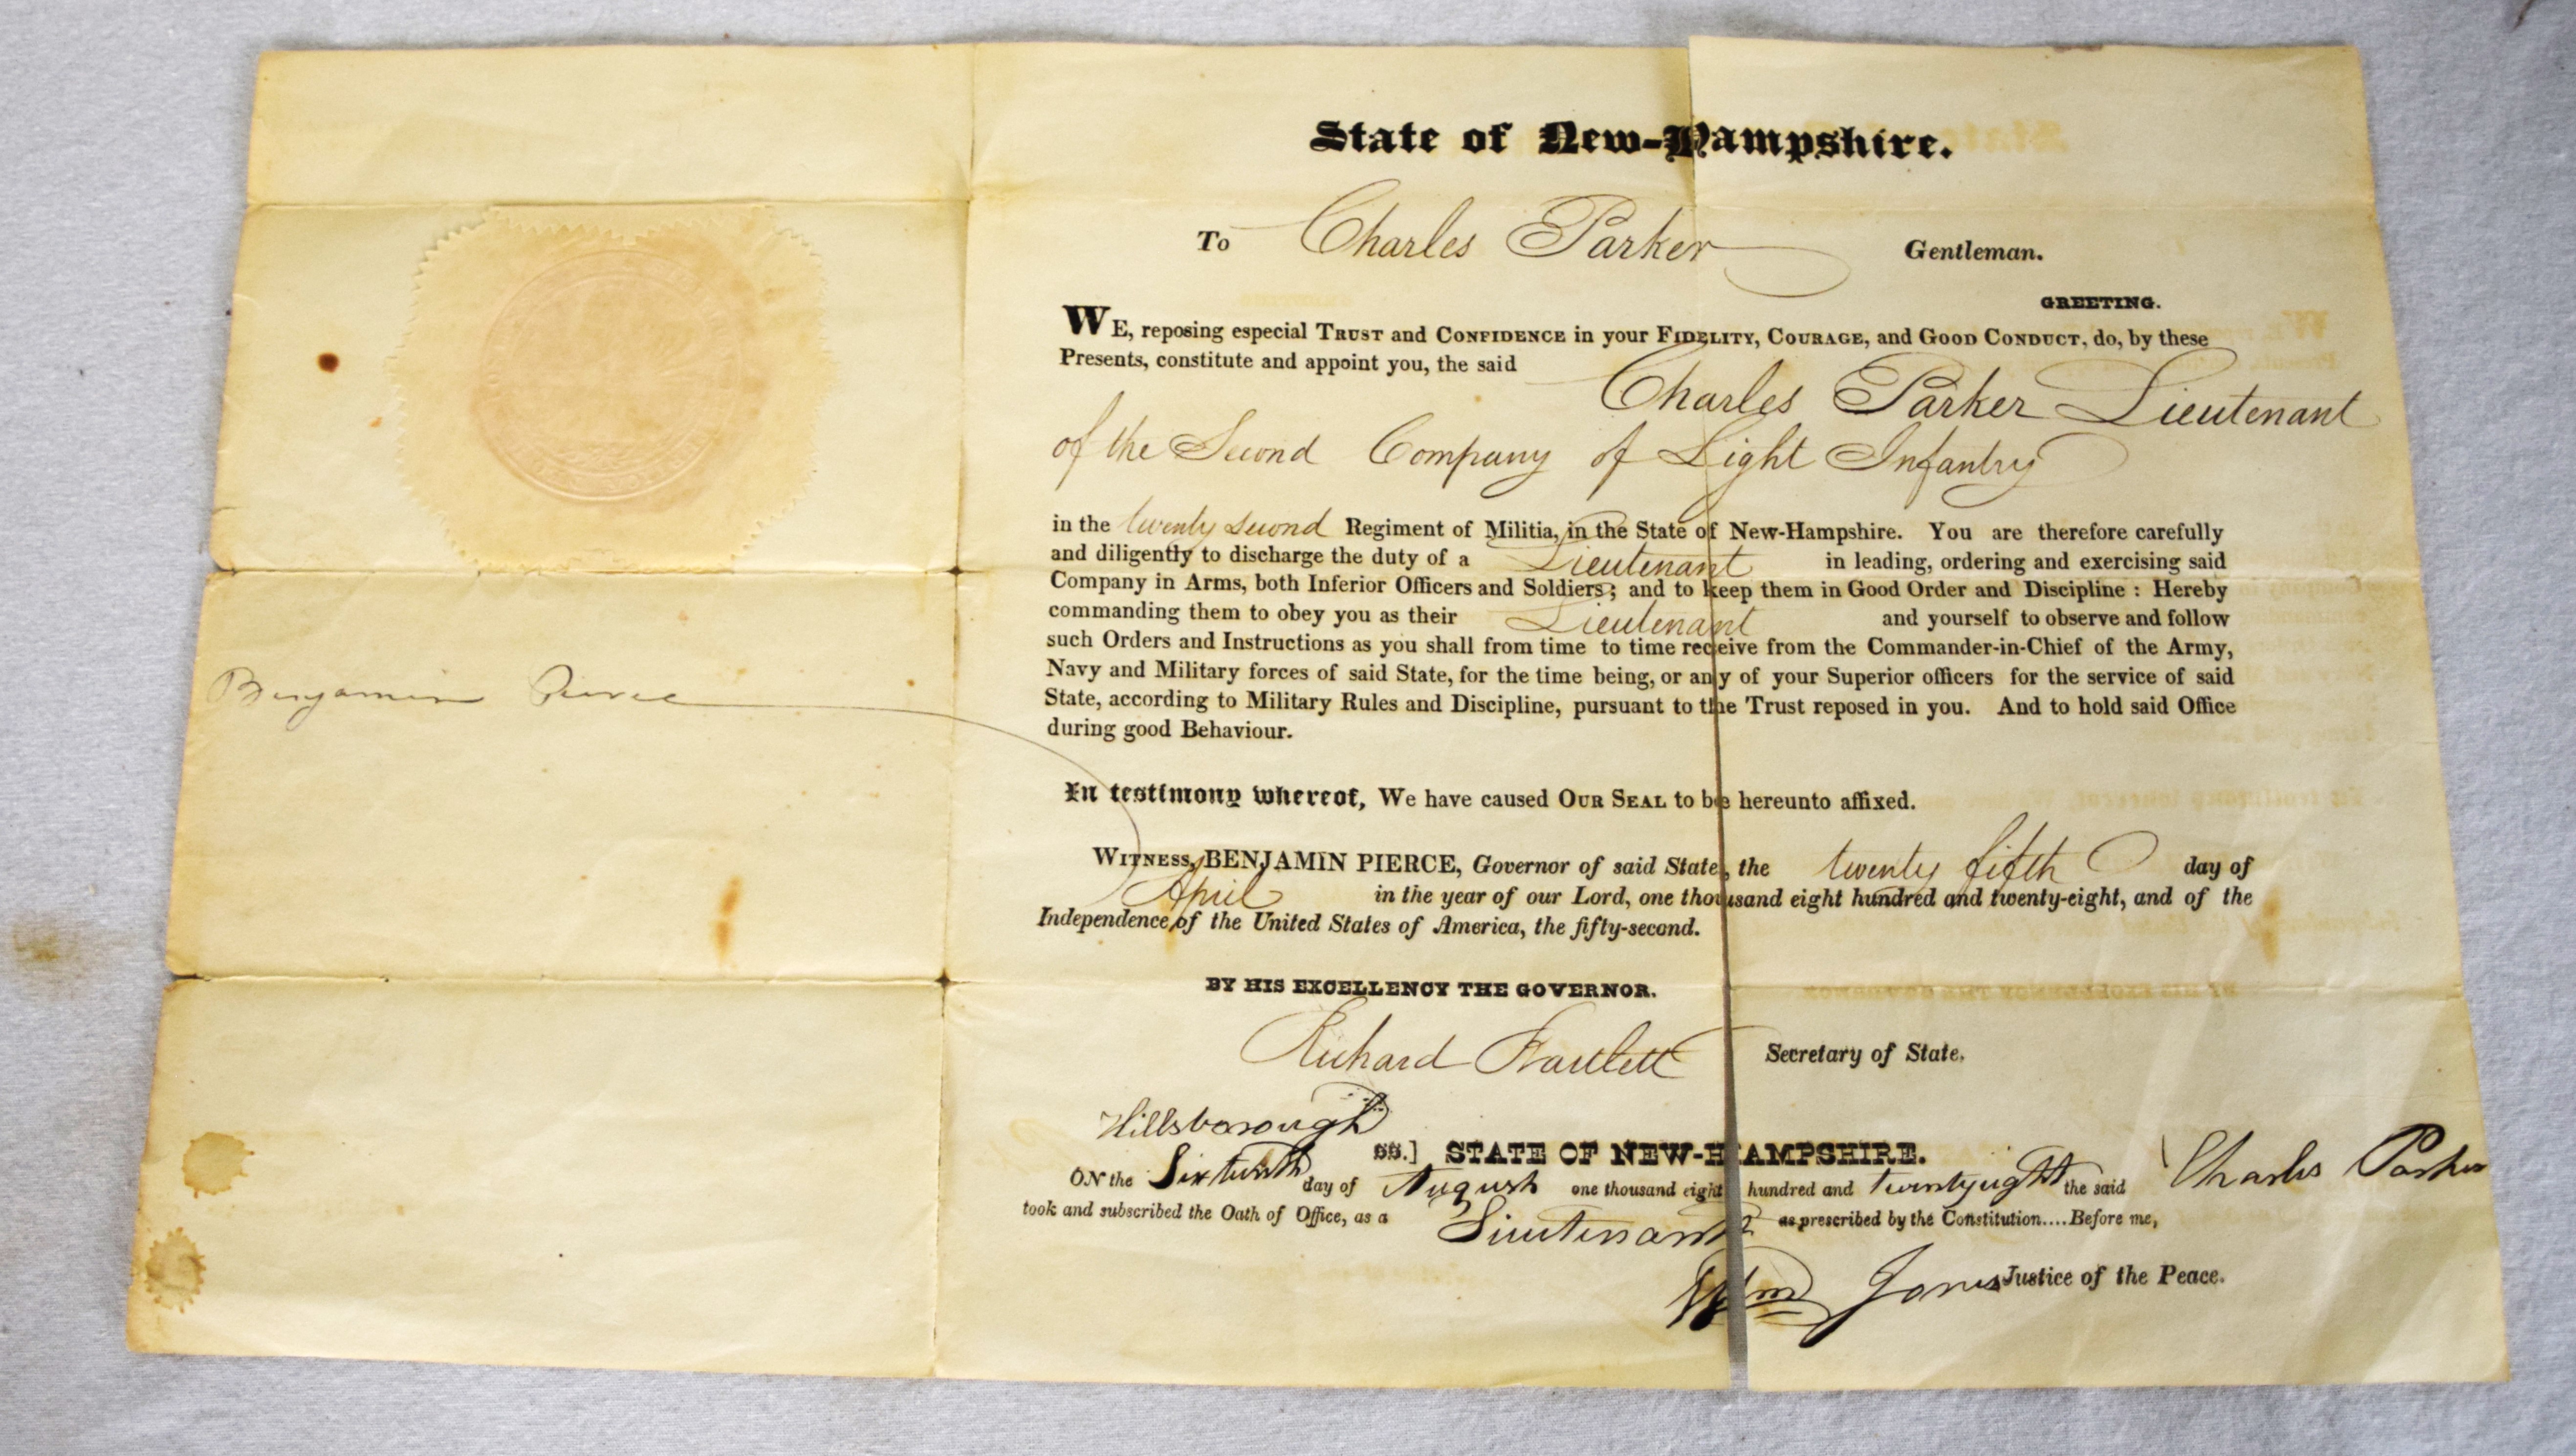 State of New-Hampshire.
To Charles Parker Gentleman.
GREETING.
WE, reposing especial TRUST and CONFIDENCE in your FIDELITY, COURAGE, and GOOD CONDUCT, do, by these
Presents, constitute and appoint you, the said
Charles Parker Lieutenant
of the Second Company of Light Infantry
in the twenty second Regiment of Militia, in the State of New-Hampshire. You are therefore carefully
and diligently to discharge the duty of a Lieutenant in leading, ordering and exercising said
Company in Arms, both Inferior Officers and Soldiers; and to keep them in Good Order and Discipline: Hereby
commanding them to obey you as their Lieutenant and yourself to observe and follow
such Orders and Instructions as you shall from time to time receive from the Commander-in-Chief of the Army,
Navy and Military forces of said State, for the time being, or any of your Superior officers for the service of said
State, according to Military Rules and Discipline, pursuant to the Trust reposed in you. And to hold said Office
during good Behaviour.
Benjamin Pierce
In testimony whereof, We have caused OUR SEAL to be hereunto affixed.
WITNESS, BENJAMIN PIERCE, Governor of said State, the twenty fifth day of
April in the year of our Lord, one thousand eight hundred and twenty-eight, and of the
Independence of the United States of America, the fifty-second.
BY HIS EXCELLENCY THE GOVERNOR.
Richard Bartlett Secretary of State.
Hillsborough
SS.] STATE OF NEW-HAMPSHIRE.
ON the Sixteenth day of August one thousand eight hundred and twenty eight the said Charles Parker
took and subscribed the Oath of Office, as a Lieutenant as prescribed by the Constitution....Before me,
Wm Jones Justice of the Peace.